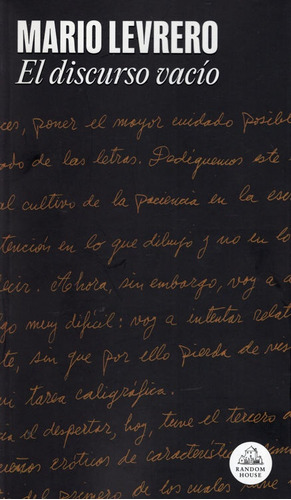 MARIO LEVRERO
El discurso vacío
ces, poner el mayor cuidado posibl
ado de las letras. Dediquemos este
al cultivo de la paciencia en la esc
tención en lo que dibujo y no en lo
decir. Ahora, sin embargo, voy a a
lgo muy difícil: voy a intentar relat
te, sin que por ello pierda de vis
mi tarea caligráfica.
al despertar, hoy, tuve el tercero d
sueños eróticos de característic
del primero de los cuales me
RANDOM
HOUSE